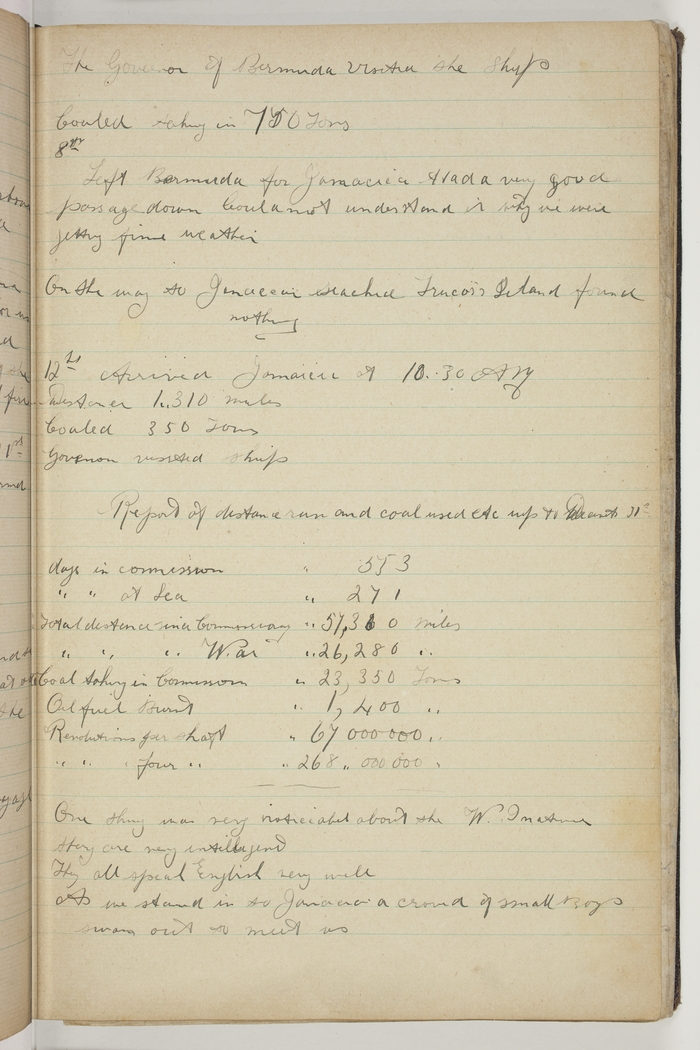 The Governor of Bermuda visited the ship
Coaled taking in 750 Tons
8th
Left Bermuda for Jamacica Had a very good
passage down Could not understand it why we were
getting fine weather
On the way to Jamacica seached Island found
nothing
12th Arrived Jamaica at 10.30 AM
Distance 1,310 miles
Coaled 350 Tons
Govenon vissted ship
Report of distance run and coal used etc up to 31st
days in commission " 553
" " at Sea " 271
Total distance since Commissiong " 57,360 miles
" " " War " 26,280 "
Coal taking in Commission " 23,350 Tons
Oil fuel Burnt " 1,400 "
Revolutions per shaft " 67 000 000 "
" " " four " " 268 " 000 000 "
One thing was very noticeabel about the W. Inatives
they are very intelligend
They all speak English very well
As we stand in to Jamacia a crowd of small boys
swam out to meet us